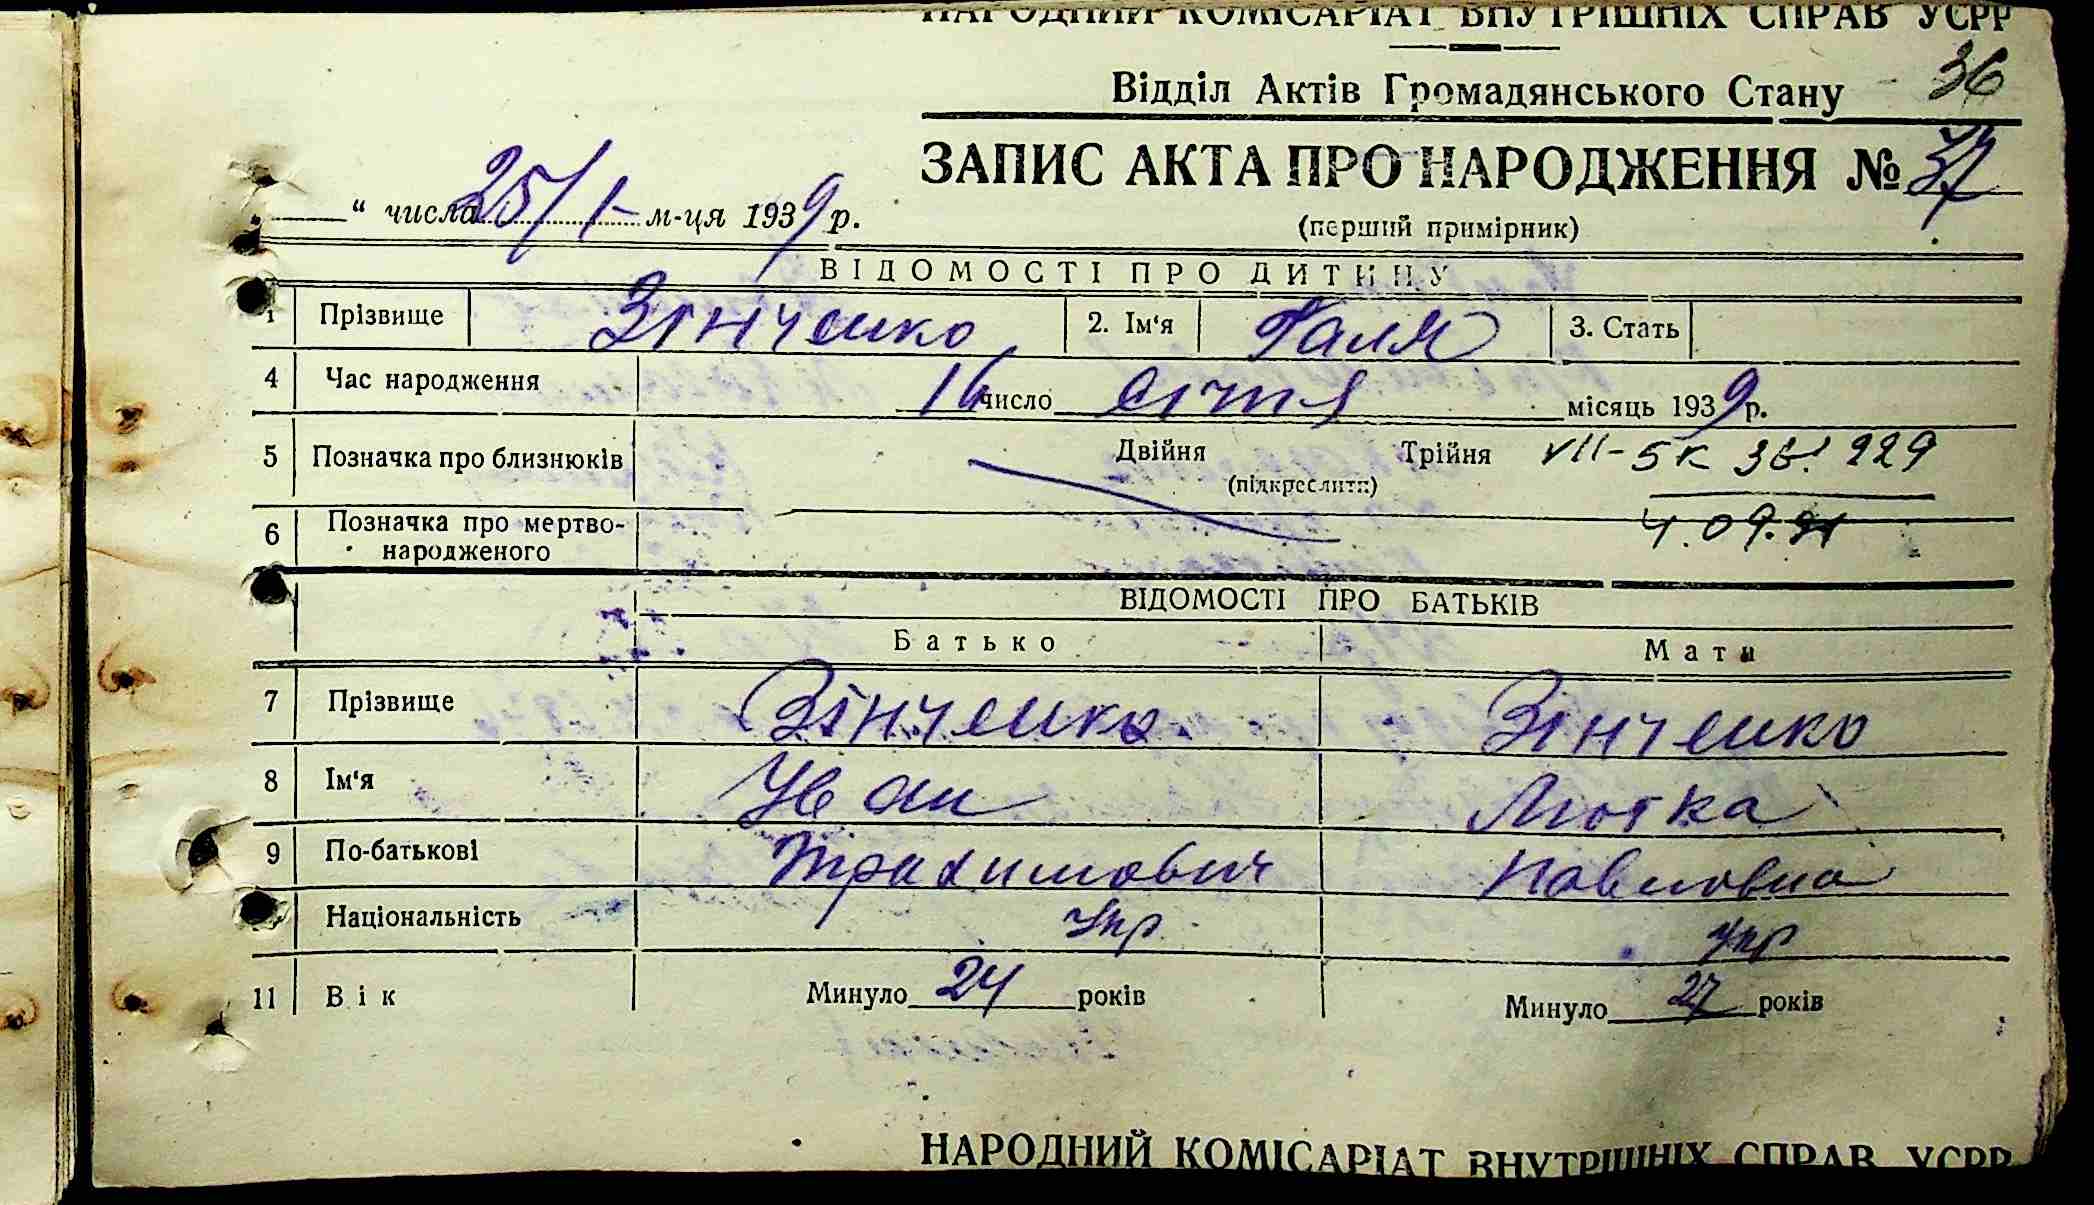 НАРОДНИЙ КОМІСАРІАТ ВНУТРІШНІХ СПРАВ УСРР
Відділ Актів Громадянського Стану 36
ЗАПИС АКТА ПРО НАРОДЖЕННЯ № 37
" числа 25/I- м-ця 1939 р.
(перший примірник)
ВІДОМОСТІ ПРО ДИТИНУ
1 Прізвище Зінченко 2. Ім'я Галя 3. Стать
4 Час народження 16 число січня місяць 1939 р.
5 Позначка про близнюків Двійня Трійня VII-5К 36! 229
(підкреслити)
6 Позначка про мертво-народженого 4.09.91
ВІДОМОСТІ ПРО БАТЬКІВ
Батько Мати
7 Прізвище Зінченко Зінченко
8 Ім'я Иван Мотка
9 По-батькові Трахимович Павловна
Національність Укр Укр
11 Вік Минуло 24 років Минуло 27 років
НАРОДНИЙ КОМІСАРІАТ ВНУТРІШНІХ СПРАВ УСРР